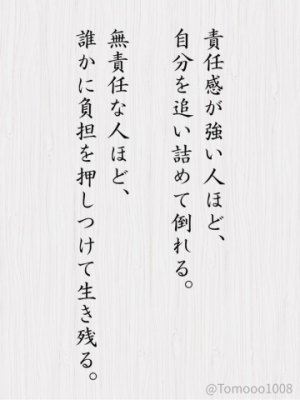 責任感が強い人ほど、
自分を追い詰めて倒れる。
無責任な人ほど、
誰かに負担を押しつけて生き残る。
@Tomooo1008